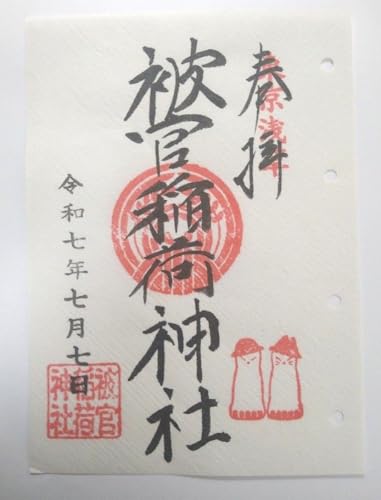 奉拝
東京浅草
被官稲荷神社
令和七年七月七日
被官
稲荷
神社